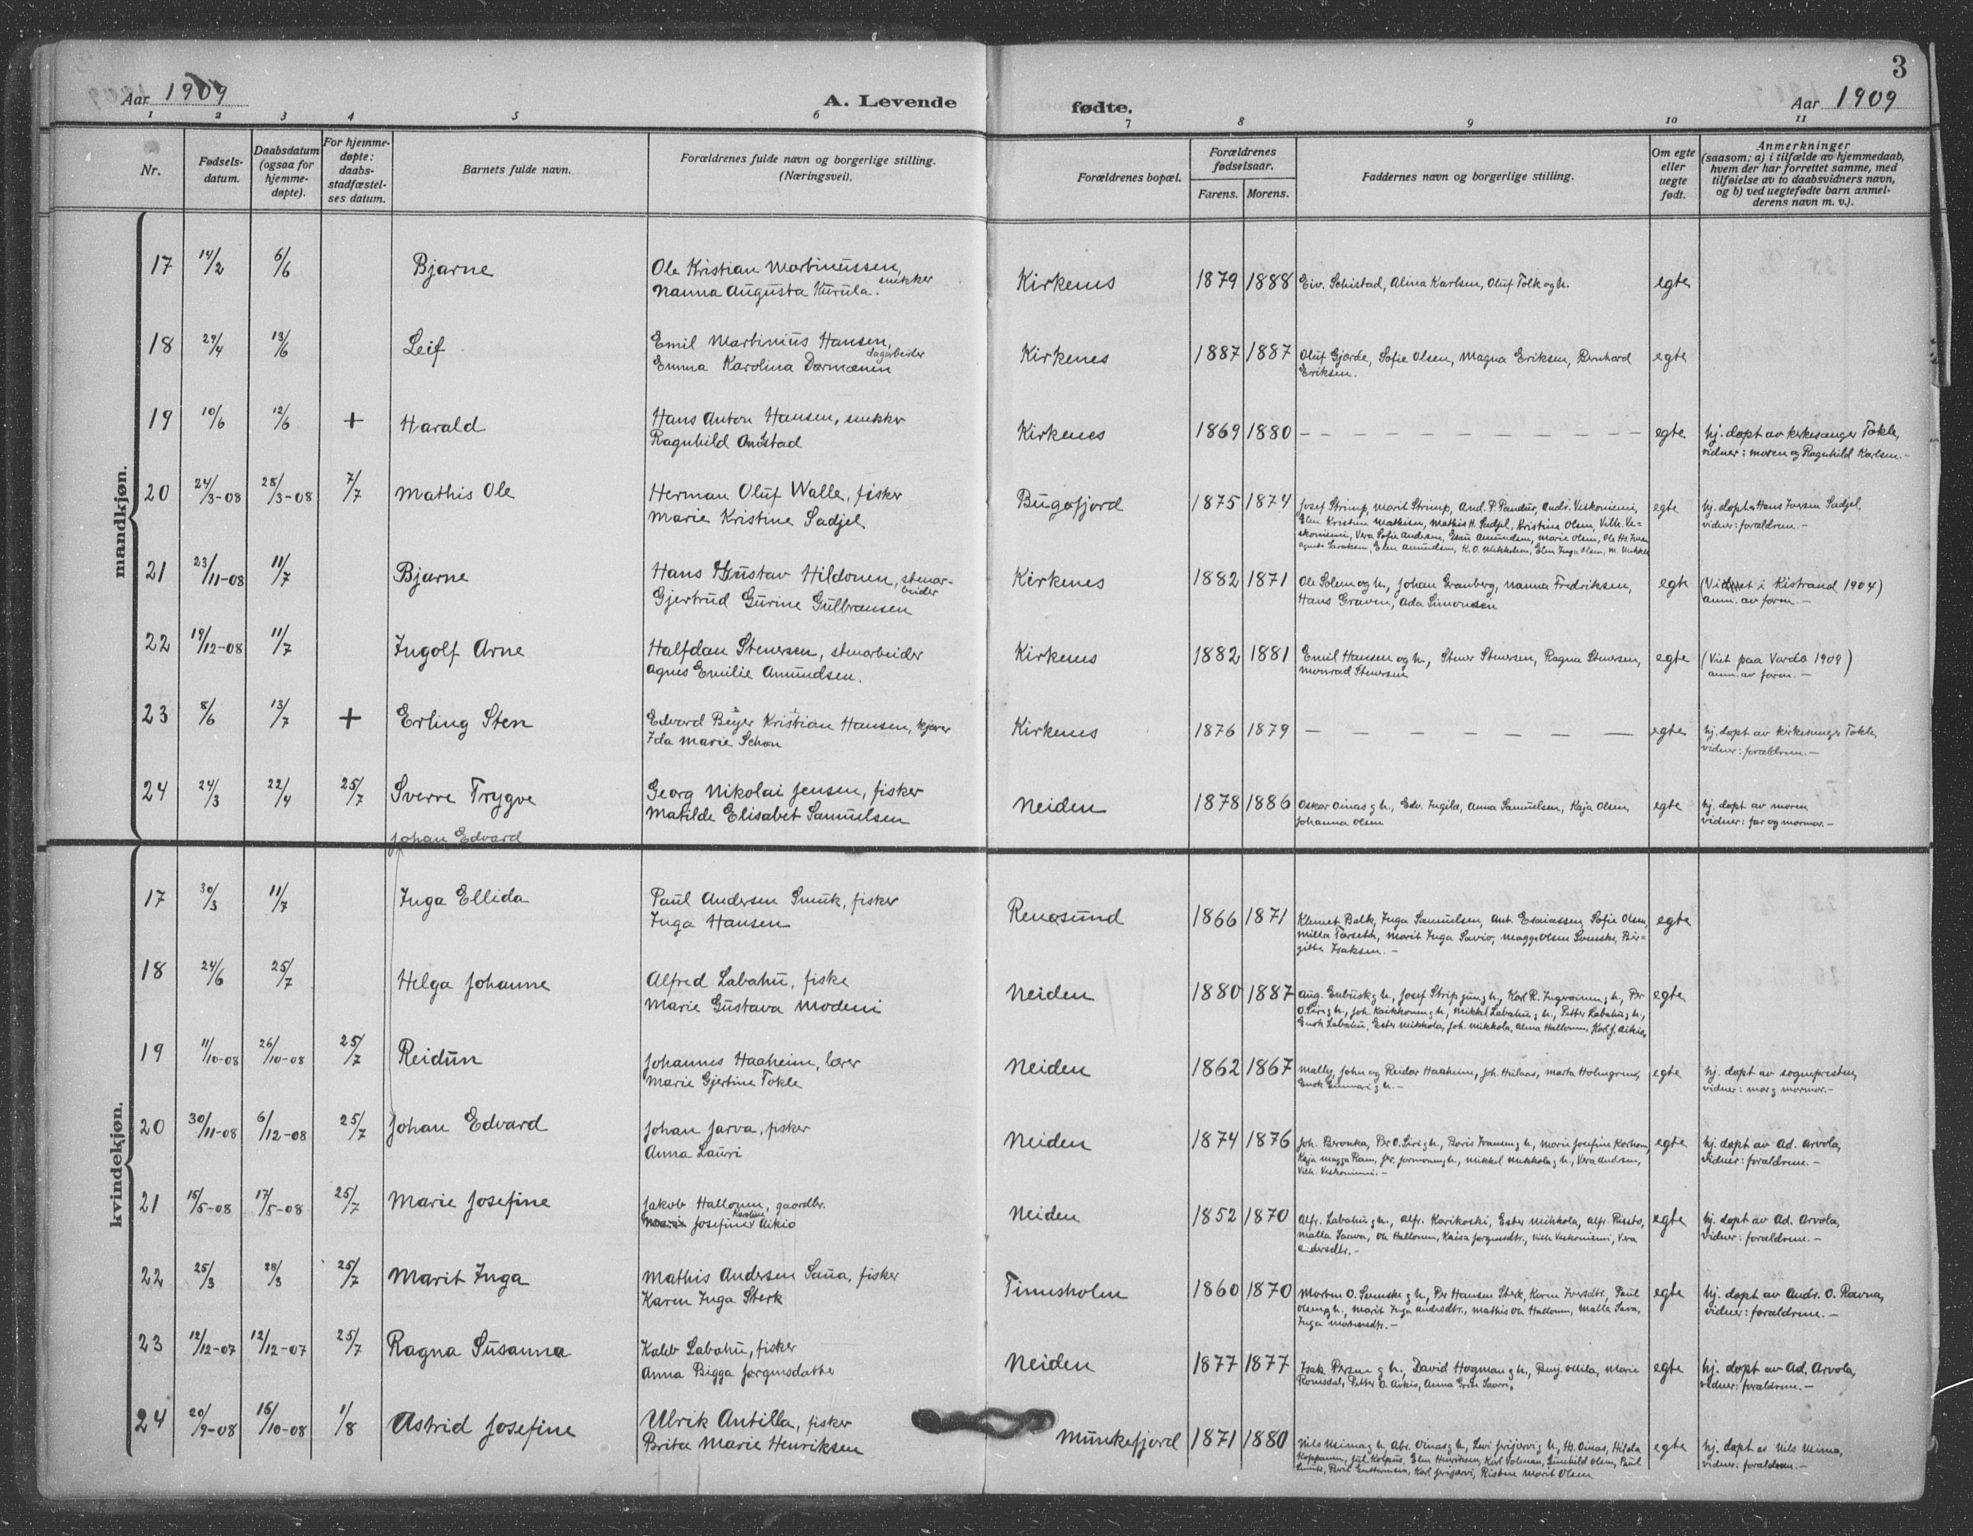 3
Aar 1909
A. Levende
fødte.
Aar 1909
1 2 3 4 5 6 7 8 9 10 11
Nr.
Fødsels-
datum.
Daabsdatum
(ogsaa for
hjemme-
døpte).
For hjemme-
døpte:
daabs-
stadfæstel-
ses datum.
Barnets fulde navn.
Forældrenes fulde navn og borgerlige stilling.
(Næringsvei).
Forældrenes bopæl.
Forældrenes
fødselsaar.
Farens. Morens.
Faddernes navn og borgerlige stilling.
Om egte
eller
uegte
født.
Anmerkninger
(saasom: a) i tilfælde av hjemmedaab,
hvem der har forrettet samme, med
tilføielse av to daabsvidners navn,
og b) ved uegtefødte barn anmel-
derens navn m. v.).
mandkjøn.
17 14/2 6/6 Bjarne
Ole Kristian Martinussen, snekker
Nanna Augusta Kurula.
Kirkenes 1879 1888
Eiv. Schistad, Alma Karlsen, Oluf Tolk og h.
egte
18 29/4 13/6 Leif
Emil Martinius Hansen, dagarbeider
Emma Karolina Dormænin
Kirkenes 1887 1887
Oluf Gjørde, Sofie Olsen, Magna Eriksen, Bernhard
Eriksen.
egte
19 10/6 12/6 + Harald
Hans Anton Hansen, snekker
Ragnhild Anstad
Kirkenes 1869 1880
egte
hj. døpt av kirkesanger Tokle,
vidner: moren og Ragnhild Karlsen.-
20 24/3-08 28/3-08 7/7 Mathis Ole
Herman Oluf Walle, fisker
Marie Kristine Sadjel
Bugøfjord 1875 1874
Josef Strimp, Marit Strimp, And. P. Pandur, Andr. Veskoniemi,
Elen Kristine Mathisen, Mathis H. Sadjel, Kristine Olsen, Vilh. Ve-
skoniemi, Vera Sofie Andersen, Esau Amundsen, Marie Olsen, Ole Hs.
Elen Amundsen, K. O. Mikkelsen, Elen Inga Olsen, M. Mikkel
egte
hj. døpt Hans Iversen Sadjel,
vidner: forældrene.-
21 23/11-08 11/7 Bjarne
Hans Gustav Hildonen, stenar-
beider
Gjertrud Gurine Gulbransen
Kirkenes 1882 1871
Ole Solem og h., Johan Granberg, Nanna Fredriksen,
Hans Graven, Ada Simonsen
egte
(Viet i Kistrand 1904)
anm. av foren.-
22 19/12-08 11/7 Ingolf Arne
Halfdan Stenersen, stenarbeider
Agnes Emilie Amundsen.
Kirkenes 1882 1881
Emil Hansen og h., Stener Stenersen, Ragna Stenersen,
Monrad Stenersen
egte
(Viet paa Vardø 1909)
anm. av foren.-
23 8/6 13/7 + Erling Sten
Edvard Beyer Kristian Hansen, kjører
Ida Marie Schøn
Kirkenes 1876 1879
egte
hj. døpt av kirkesanger Tokle,
vidner: forældrene.-
24 24/3 22/4 25/7 Sverre Trygve
Georg Nikolai Jensen, fisker
Matilde Elisabet Samuelsen
Neiden 1878 1886
Oskar Oinas g h., Edv. Ingilæ, Anna Samuelsen, Kaja Olsen,
Johanna Olsen
egte
hj. døpt av moren
vidner: far og mormor.-
Johan Edvard
kvindekjøn.
17 30/3 11/7 Inga Ellida
Paul Andersen Smuk, fisker
Inga Hansen
Renøsund 1866 1871
Klemet Balk, Inga Samuelsen, Ant. Esaiassen, Sofie Olsen,
Milla Tørseth, Marit Inga Savio, Magge Olsen Somske, Bir-
gitte Isaksen.-
egte
18 24/6 25/7 Helga Johanne
Alfred Labahu, fiske
Marie Gustava Modeni
Neiden 1880 1887
Aug. Enbusk g h., Josef Strip jun g h., Karl R. Ingeroinen g h., Br
O. Siri g h., Joh. Kaikkonen g h., Mikkel Labahu g h., Petter Labahu g h.,
Enok Labahu, Ester Mikkola, Joh. Mikkola, Alma Hallonen, Karl J. Aikio,
egte
19 11/10-08 26/10-08 25/7 Reidun
Johannes Haaheim, lærer
Marie Gjertine Tokle
Neiden 1862 1867
Mally, John og Reidar Haaheim, Joh. Hulaas, Marta Holmgren,
Enok Gunnari g h.-
egte
hj. døpt av sognepresten,
vidner: mor g mormor.-
20 30/11-08 6/12-08 25/7 Johan Edvard
Johan Jarva, fisker
Anna Lauri
Neiden 1874 1876
Joh. Beronka, Br O. Siri g h., Boris Fransen g h., Marie Josefine Korhonen,
Kaja Magga Ram, Jer. Jormonen g h., Mikkel Mikkola g h., Vera Andersen,
Vilh. Veskoniemi.-
egte
hj. døpt av Ad. Arvola,
vidner: forældrene.-
21 15/5-08 17/5-08 25/7 Marie Josefine
Jakob Hallonen, gaardbr.
Maria Josefine Karoline Aikio
Neiden 1852 1870
Alfr. Labahu g h., Alfr. Karikoski, Ester Mikkola, Alfr. Ruoto,
Malla Saeva, Ole Hallonen, Kaisa Jørgensdtr., Vilh. Veskoniemi, Vera
Andersdtr.-
egte
hj. døpt av Ad. Arvola,
vidner: forældrene.-
22 25/3 28/3 25/7 Marit Inga
Mathis Andersen Saua, fisker
Karen Inga Sterk
Timesholm 1860 1870
Morten O. Somske g h., Per Hansen Sterk, Karen Iversdtr., Paul
Olsen g h., Marit Inga Andersdtr., Mathis Ole Hallonen, Malla Sava,
Inga Mortensdtr.-
egte
hj. døpt av Andr. O. Ravna,
vidner: forældrene.-
23 12/12-07 12/12-07 25/7 Ragna Susanna
Kaleb Labahu, fisker
Anna Bigga Jørgensdatter
Neiden 1877 1877
Isak Persen g h., David Hagman g h., Benj. Mila, Marie
Romsdal, Petter O. Aikio, Anna Grete Saari,
egte
hj. døpt av Ad. Arvola,
vidner: forældrene.-
24 20/9-08 16/10-08 1/8 Astrid Josefine
Ulrik Antilla, fisker
Brita Marie Henriksen
Munkefjord 1871 1880
Nils Neima g h., Abr. Oinas g h., Levi Jerijærvi g h., Hs. Oinas, Hilda
Koppanen, Jul. Kolpus, Elen Henriksen, Karl Volman, Gunhild Olsen, Paul
Karl Jerijærvi, Risten Marit Olsen
egte
hj. døpt av Nils Neima,
vidner: forældrene.-